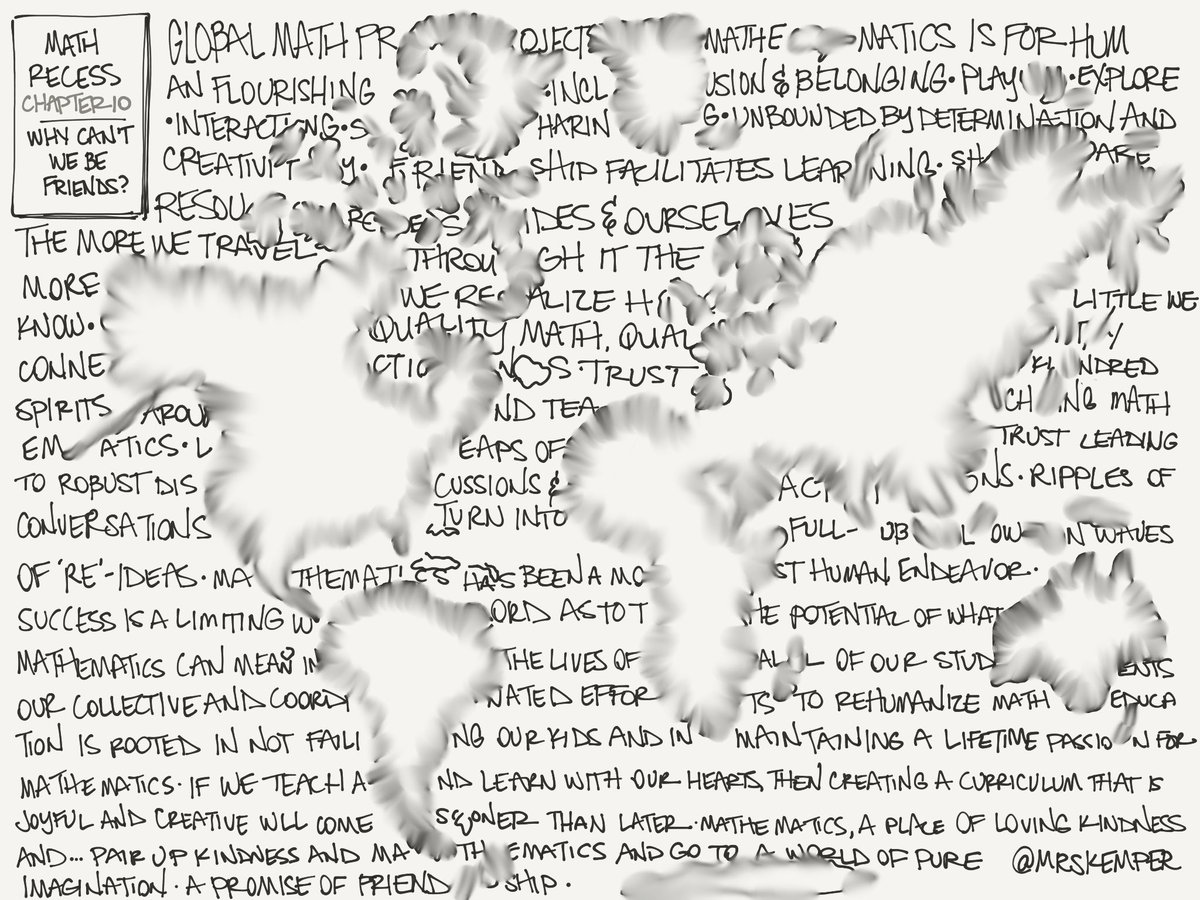 MATH
RECESS
CHAPTER 10
WHY CAN'T
WE BE
FRIENDS?
GLOBAL MATH PROJECTS MATHEMATICS IS FOR HUM
AN FLOURISHING • INCLUSION & BELONGING • PLAY • EXPLORE
• INTERACTING • SHARING • UNBOUNDED BY DETERMINATION AND
CREATIVITY • FRIENDSHIP FACILITATES LEARNING • SHARE
RESOURCES IDES & OURSELVES
THE MORE WE TRAVEL THROUGH IT THE
MORE WE REALIZE HOW LITTLE WE
KNOW • QUALITY MATH, QUALITY
CONNECTIONS • TRUST KINDRED
SPIRITS AROUND TEACHING MATH
EMATICS • LEAPS OF TRUST LEADING
TO ROBUST DISCUSSIONS & ACTIONS • RIPPLES OF
CONVERSATIONS TURN INTO FULL-UBLOWN WAVES
OF 'RE'-IDEAS • MATHEMATICS HAS BEEN A MOST HUMAN ENDEAVOR •
SUCCESS IS A LIMITING WORD AS TO THE POTENTIAL OF WHAT
MATHEMATICS CAN MEAN IN THE LIVES OF ALL OF OUR STUDENTS
OUR COLLECTIVE AND COORDINATED EFFORTS TO REHUMANIZE MATH EDUCA
TION IS ROOTED IN NOT FAILING OUR KIDS AND IN MAINTAINING A LIFETIME PASSION FOR
MATHEMATICS • IF WE TEACH AND LEARN WITH OUR HEARTS, THEN CREATING A CURRICULUM THAT IS
JOYFUL AND CREATIVE WLL COME SOONER THAN LATER • MATHEMATICS, A PLACE OF LOVING KINDNESS
AND... PAIR UP KINDNESS AND MATHEMATICS AND GO TO A WORLD OF PURE @MRSKEMPER
IMAGINATION • A PROMISE OF FRIENDSHIP •